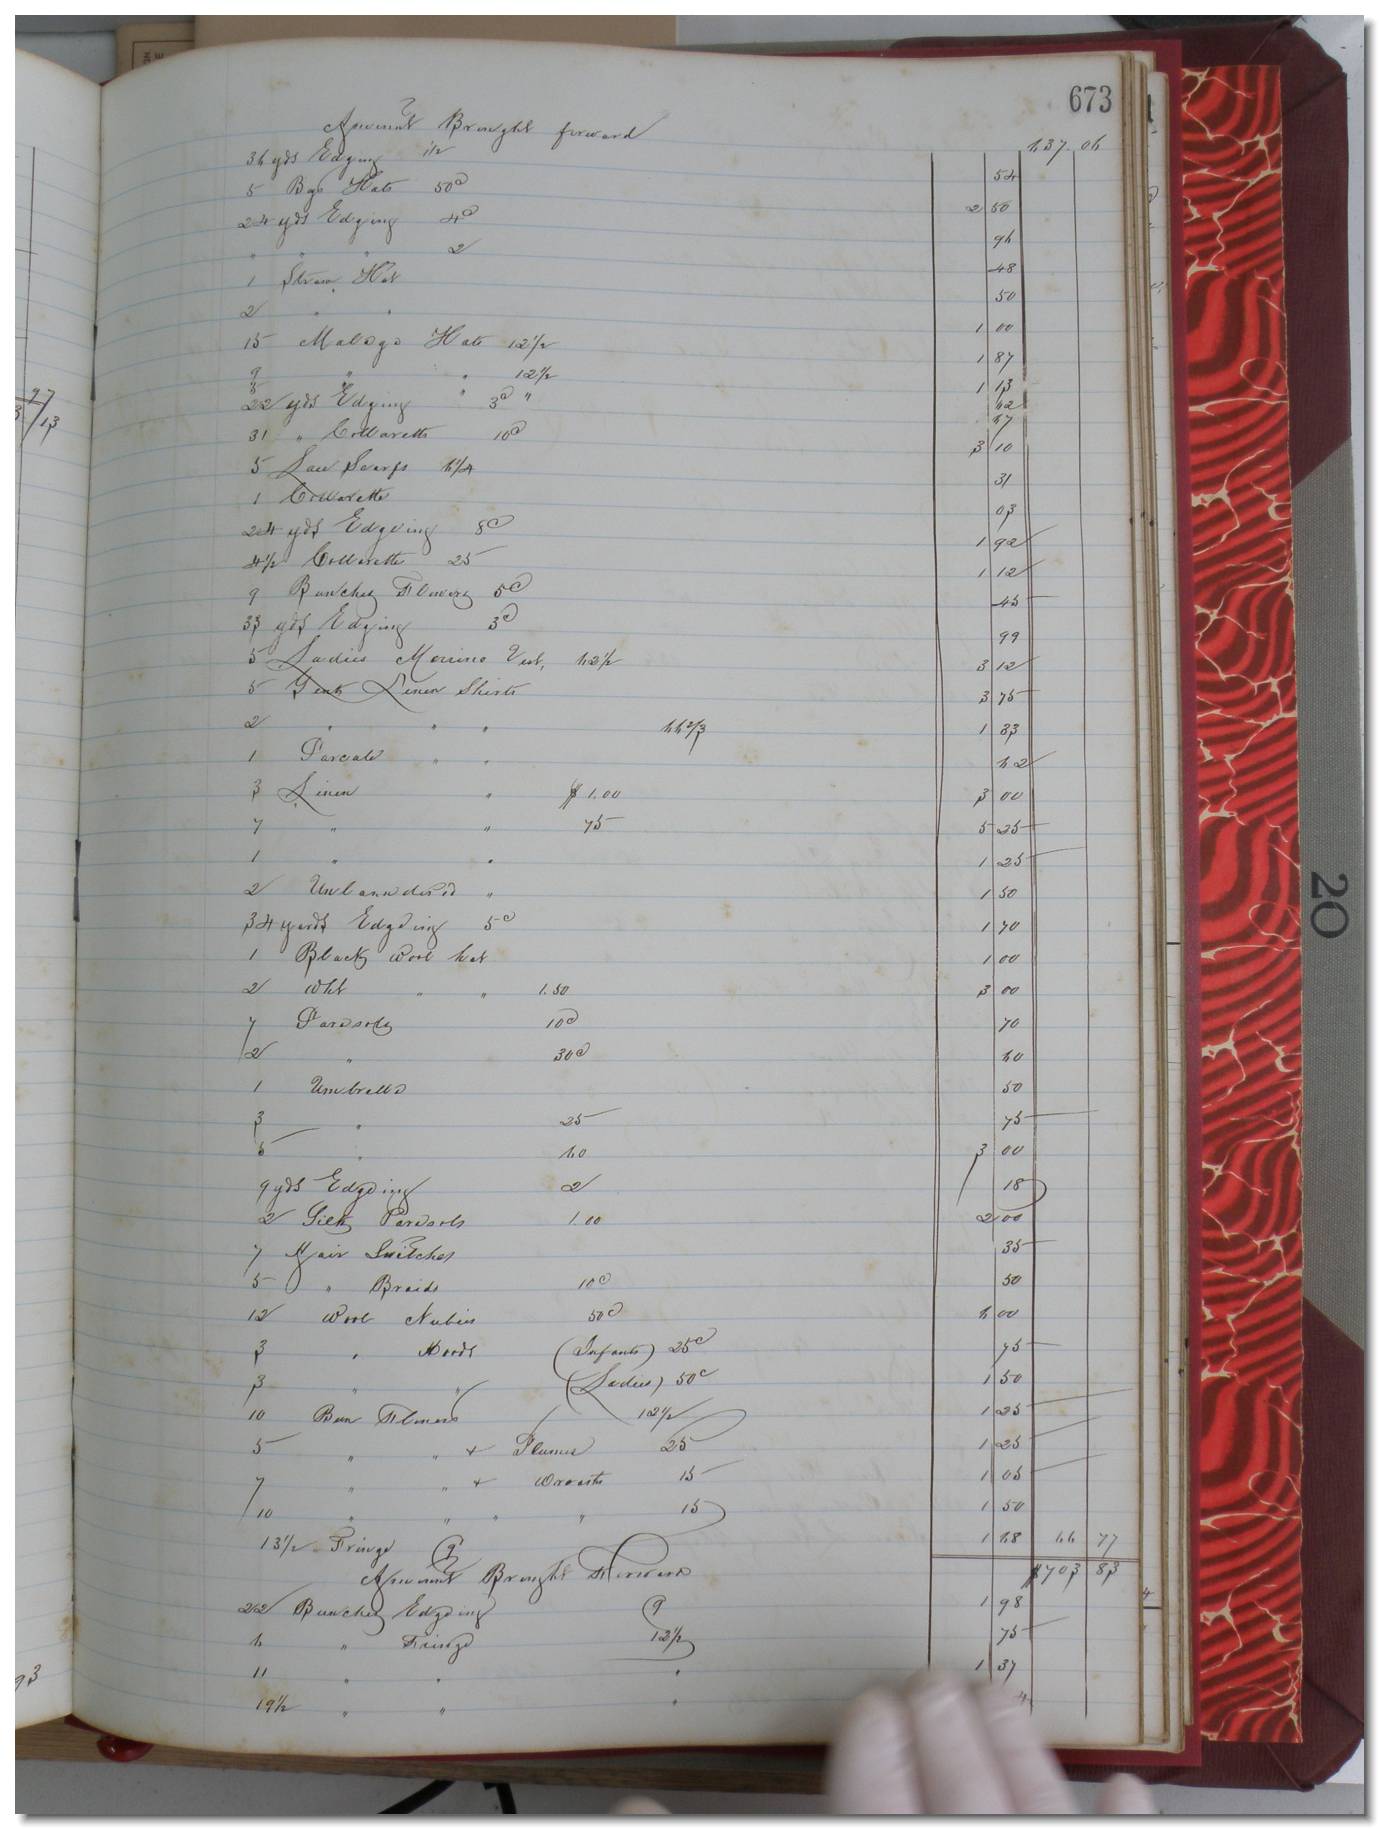 673
Amount Brought forward 637 06
36 yds Edging 1½ 54
5 Boys Hats 50c 2 50
24 yds Edging 4c 96
" " " 2 48
1 Straw Hat 50
2 " " 1 00
15 Malaga Hats 12½ 1 87
9 " " 12½ 1 13
5 " " " 62
22 yds Edging 3c 67
31 " Collarette 10c 3 10
5 Lace Scarfs 6¼ 31
1 Collarette 03
24 yds Edgeing 8c 1 92
4½ Collarette 25 1 12
9 Bunches Flowers 5c 45
33 yds Edging 3c 99
5 Ladies Merino Vest, 62½ 3 12
5 Gents Linen Shirts 3 75
2 " " " 66⅔ 1 33
1 Parcale " " 62
3 Linen " $1.00 3 00
7 " " 75 5 25
1 " " 1 25
2 Unlaundered " 1 50
34 yards Edgeing 5c 1 70
1 Black Wool hat 1 00
2 Wht " " 1.50 3 00
7 Parasols 10c 70
2 " 30c 60
1 Umbrella 50
3 " 25 75
5 " 60 3 00
9 yds Edgeing 2 18
2 Silk Parasols 1.00 2 00
7 Hair Switches 35
5 " Braids 10c 50
12 Wool Nubies 50c 6 00
3 " Hoods (Infants) 25c 75
3 " " (Ladies) 50c 1 50
10 Bun Flowers 12½ 1 25
5 " " + Plumes 25 1 25
7 " " + Wreaths 15 1 05
10 " " " " 15 1 50
13½ Fringe 9 1 68 66 77
Amount Brought Forward $703 83
22 Bunches Edgeing 9 1 98
6 " Fringe 12½ 75
11 " " " 1 37
19½ " " "
97
3/13
93
20